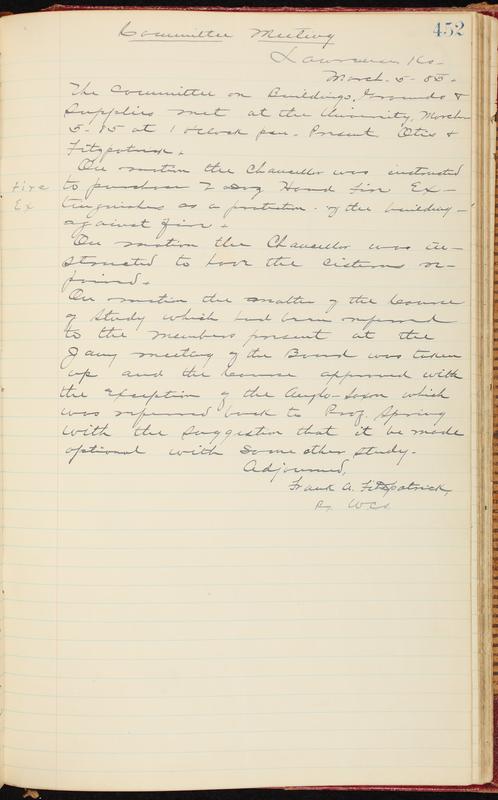 452
Committee Meeting
Lawrence Ks.
March. 5 - 85.
The Committee on Buildings, Grounds &
Supplies met at the University, March
5 - 85 at 1 oclock pm. Present Otis &
Fitzpatrick.
On motion the Chancellor was instructed
Fire
Ex
to purchase 2 doz Hand Fire Ex-
tinguishers as a protection of the building
against fire.
On motion the Chancellor was in-
structed to have the cisterns re-
paired.
On motion the matter of the Course
of Study which had been referred
to the members present at the
Jany meeting of the Board was taken
up and the Course approved with
the exception of the Anglo-Saxon which
was referred back to Prof. Spring
with the suggestion that it be made
optional with some other study.
Adjourned,
Frank A. Fitzpatrick,